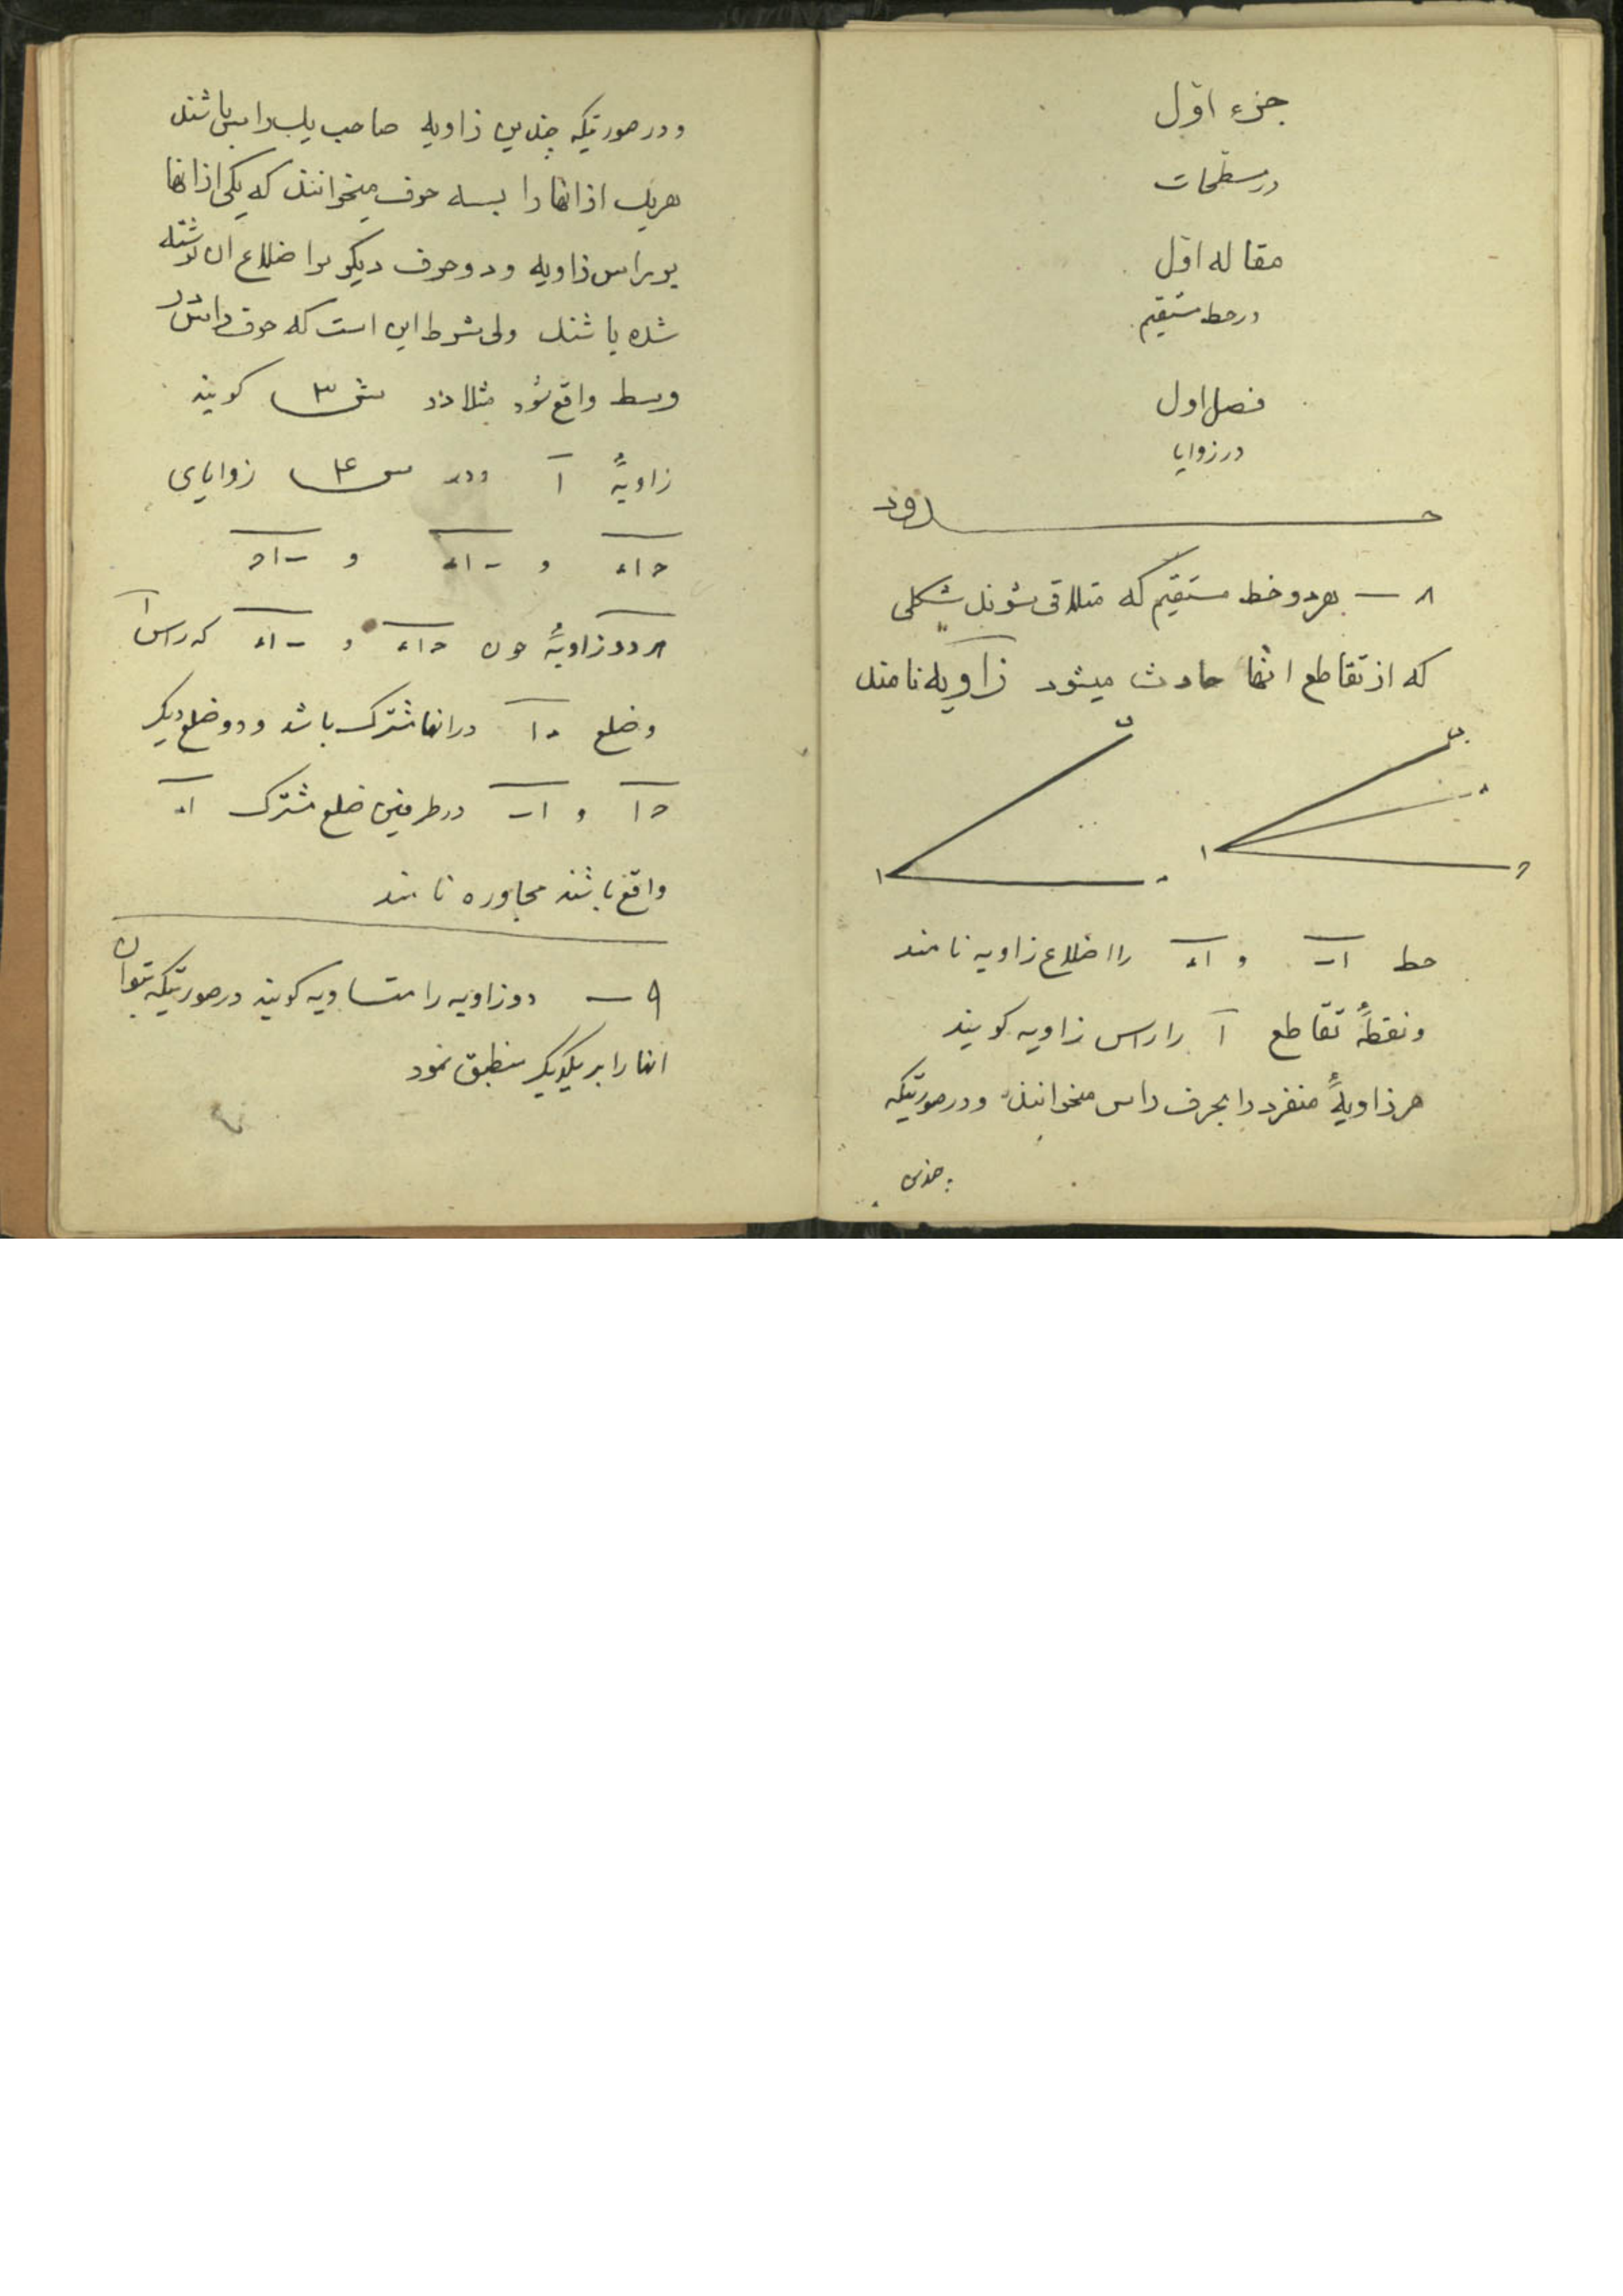 جزء اوّل
در مسطحات
مقاله اوّل
در خط مستقیم
فصل اول
در زوایا
حدود
۸ — هر دو خط مستقیم که متلاقی شوند شکلی
که از تقاطع انها حادث میشود زاویه نامند
ب
ب
ا
ا
خط اب و اء را اضلاع زاویه نامند
ونقطهٔ تقاطع آ را راس زاویه کویند
هر زاویهٔ منفرد را بحرف راس میخوانند ودر صورتیکه
چندین
ودر صورتیکه چندین زاویه صاحب یک راس باشند
هریک از انها را بسه حرف میخوانند که یکی از انها
بر راس زاویه ودو حرف دیکر بر اضلاع ان نوشته
شده باشند ولی شرط این است که حرف راس در
وسط واقع شود مثلا در ش ۳ کویند
زاویهٔ آ ودر ش ۴ زوایای
حاء و باء و باح
هر دو زاویهٔ چون حاء و باء که راس ا
وضلع ءا در انها مشترک باشد ودو ضلع دیکر
حا و اب در طرفین ضلع مشترک اء
واقع باشند مجاوره نامند
۹ — دو زاویه را متساویه کویند در صورتیکه بتوان
انها را بر یکدیکر منطبق نمود